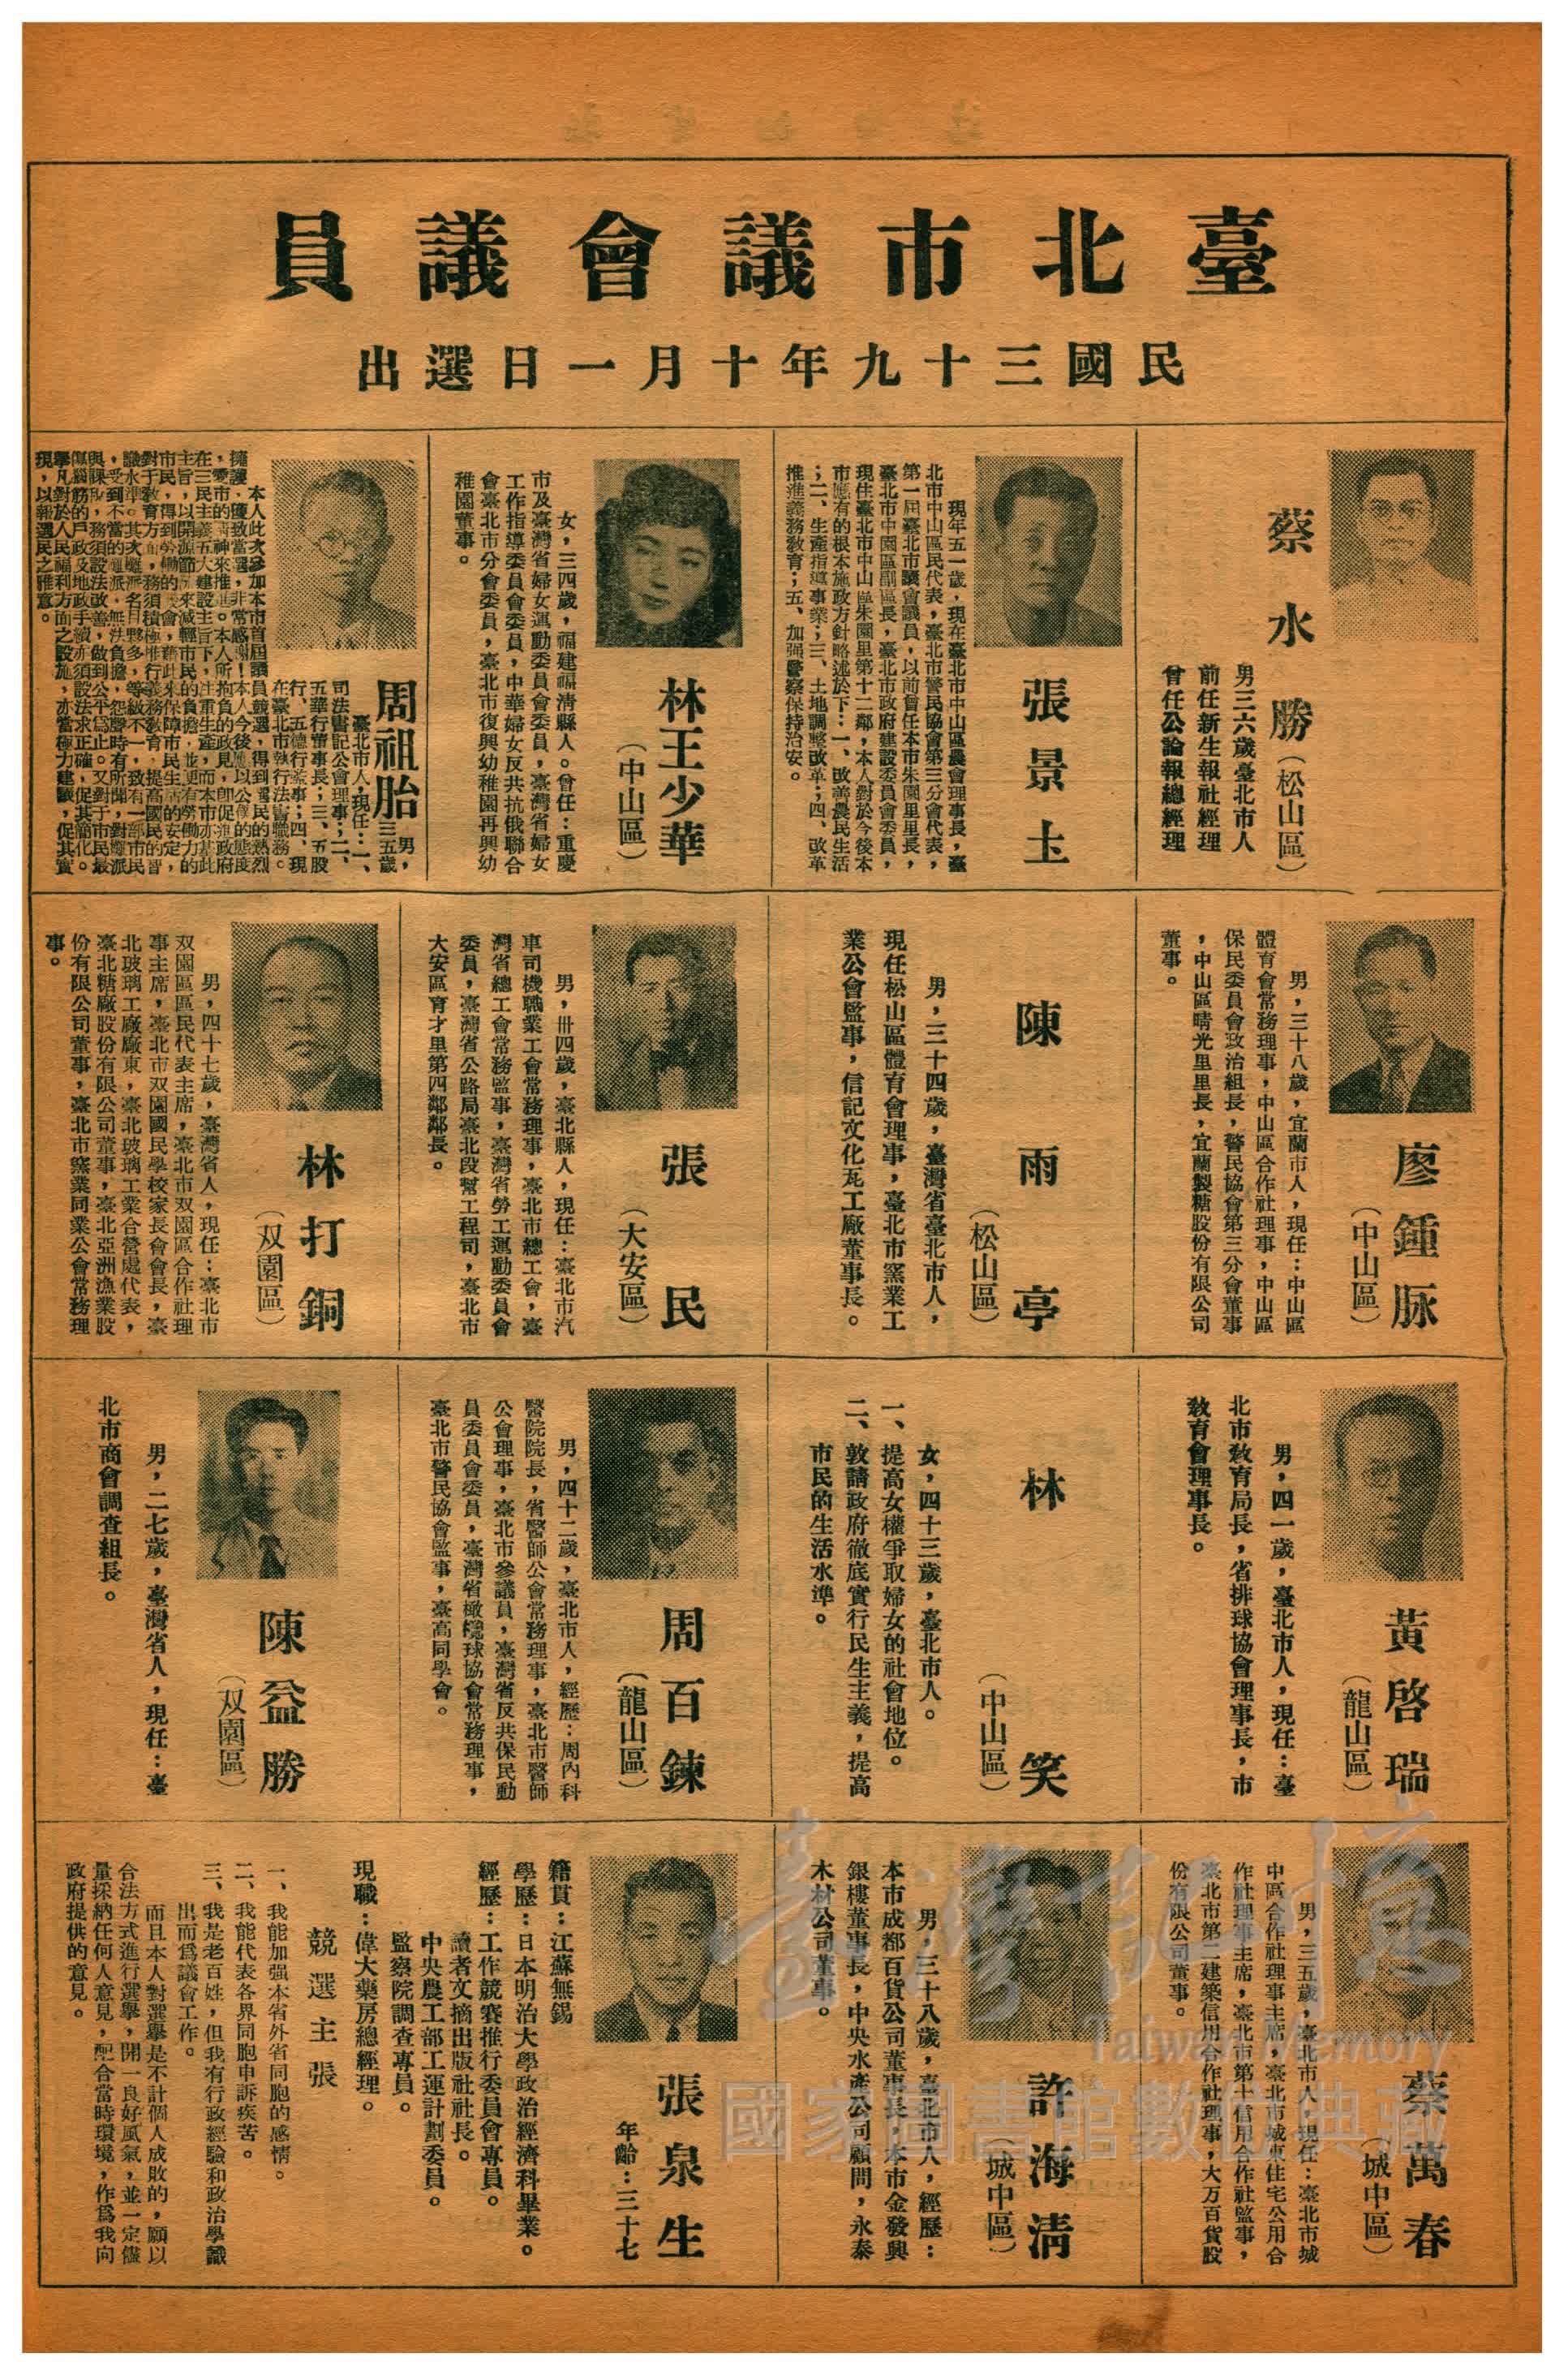 臺北市議會議員
民國三十九年十月一日選出
蔡水勝(松山區)
男三六歲臺北市人
前任新生報社經理
曾任公論報總經理
張景土
現年五一歲,現在臺北市中山區農會理事長,臺
北市中山區民代表,臺北市警民協會第三分會代表,
第一屆臺北市議會議員,以前曾任本市朱園里里長,
臺北市中園區副區長,臺北市政府建設委員會委員,
現住臺北市中山區朱園里第十二鄰,本人對於今後本
市應有的根本施政方針略述於下:一、改善農民生活
;二、生產指導事業;三、土地調整改革;四、改革
推進義務敎育;五、加强警察保持治安。
林王少華
(中山區)
女,三四歲,福建福淸縣人。曾任:重慶
市及臺灣省婦女運動委員會委員,臺灣省婦女
工作指導委員會委員,中華婦女反共抗俄聯合
會臺北市分會委員,臺北市復興幼稚園再興幼
稚園董事。
周祖胎
男,
三五歲
臺北市人,現任:一、
司法書記公會理事;二、
五華行董事長;三、五股
行、五德行董事;四、現
在臺北市執行法書職務。
本人此次參加本市首屆議員競選,得到市民的熱烈
擁護,僥致當選,非常感謝!本人今後應以公僕的態度
,愛市的精神來推進。本人所抱負的政見,卽促進政府
在三民主義五大建設主旨下,注重生產,而本市亦基此
主旨,以開源節流來減輕市民的負擔,並更有勞働力的
市民,得到勞働的機會,藉此來保障市民生活的安定,
對于敎育方面,務須積極推行義務敎育,提高國民的智
識水準。其次攤派名目夥多,等級不一,致有一部市民
,受到不當的攤派,無法負擔,怨聲時有所聞,對攤派
與課稅,務須設法改善,做到公平爲止。又對于市民最
傷腦筋的戶政及地政手續亦須設法求正確,促其簡化。
擧凡對於人民福利方面之設施,亦當極力建議,促其實
現,以報選民之雅意。
廖鍾脈
(中山區)
男,三十八歲,宜蘭市人,現任:中山區
體育會常務理事,中山區合作社理事,中山區
保民委員會政治組長,警民協會第三分會董事
,中山區晴光里里長,宜蘭製糖股份有限公司
董事。
陳雨亭
(松山區)
男,三十四歲,臺灣省臺北市人,
現任松山區體育會理事,臺北市窯業工
業公會監事,信記文化瓦工廠董事長。
張民
(大安區)
男,卅四歲,臺北縣人,現任:臺北市汽
車司機職業工會常務理事,臺北市總工會,臺
灣省總工會常務監事,臺灣省勞工運動委員會
委員,臺灣省公路局臺北段幫工程司,臺北市
大安區育才里第四鄰鄰長。
林打銅
(双園區)
男,四十七歲,臺灣省人,現任:臺北市
双園區區民代表主席,臺北市双園區合作社理
事主席,臺北市双園國民學校家長會會長,臺
北玻璃工廠廠東,臺北玻璃工業合營處代表,
臺北糖廠股份有限公司董事,臺北亞洲漁業股
份有限公司董事,臺北市窯業同業公會常務理
事。
黃啓瑞
(龍山區)
男,四一歲,臺北市人,現任:臺
北市敎育局長,省排球協會理事長,市
敎育會理事長。
林笑
(中山區)
女,四十三歲,臺北市人。
一、提高女權爭取婦女的社會地位。
二、敦請政府徹底實行民生主義,提高
市民的生活水準。
周百鍊
(龍山區)
男,四十二歲,臺北市人,經歷:周內科
醫院院長,省醫師公會常務理事,臺北市醫師
公會理事,臺北市參議員,臺灣省反共保民動
員委員會委員,臺灣省橄欖球協會常務理事,
臺北市警民協會監事,臺高同學會。
陳益勝
(双園區)
男,二七歲,臺灣省人,現任:臺
北市商會調查組長。
蔡萬春
(城中區)
男,三五歲,臺北市人,現任:臺北市城
中區合作社理事主席,臺北市城東住宅公用合
作社理事主席,臺北市第十信用合作社監事,
臺北市第二建築信用合作社理事,大万百貨股
份有限公司董事。
許海淸
(城中區)
男,三十八歲,臺北市人,經歷:
本市成都百貨公司董事長,本市金發興
銀樓董事長,中央水產公司顧問,永泰
木材公司董事。
張泉生
年齡:三十七
籍貫:江蘇無錫
學歷:日本明治大學政治經濟科畢業。
經歷:工作競賽推行委員會專員。
讀者文摘出版社社長。
中央農工部工運計劃委員。
監察院調查專員。
現職:偉大藥房總經理。
競選主張
一、我能加强本省外省同胞的感情。
二、我能代表各界同胞申訴疾苦。
三、我是老百姓,但我有行政經驗和政治學識
出而爲議會工作。
而且本人對選擧是不計個人成敗的,願以
合法方式進行選擧,開一良好風氣,並一定儘
量採納任何人意見,配合當時環境,作爲我向
政府提供的意見。
臺灣記憶
Taiwan Memory
國家圖書館數位典藏